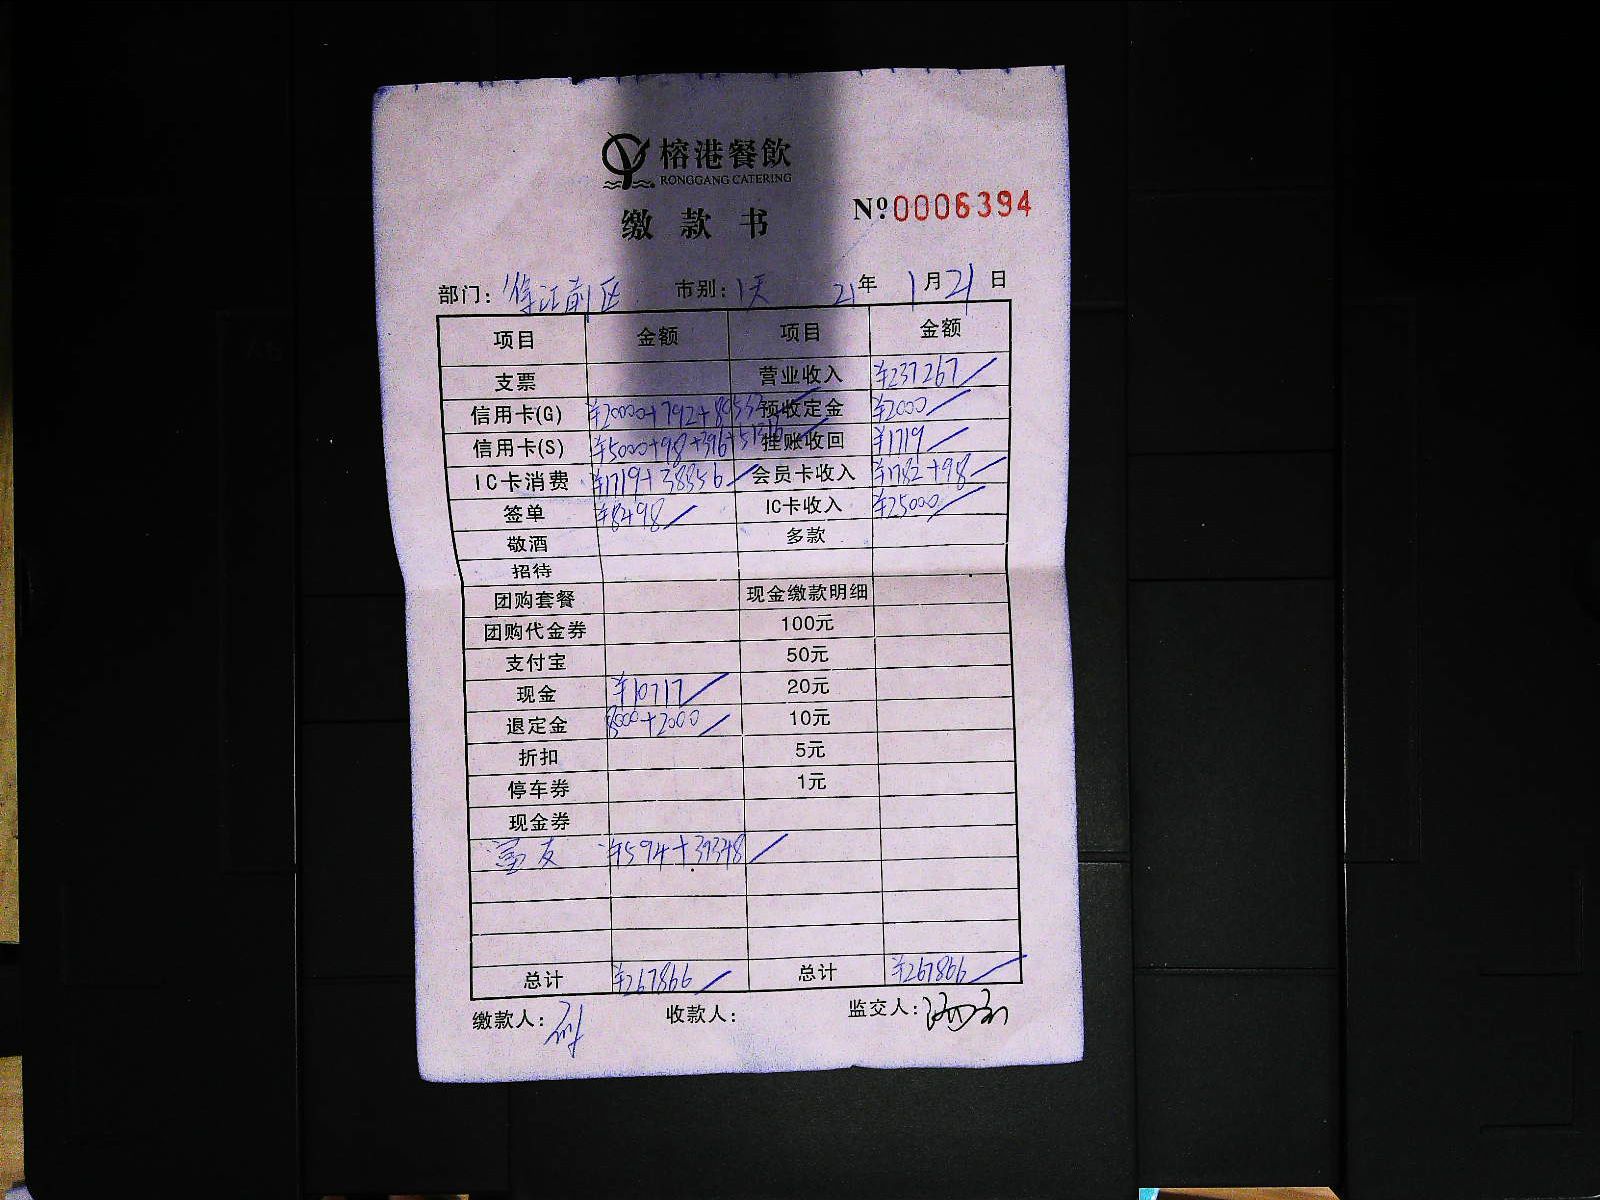 榕港餐飲
RONGGANG CATERING
缴款书 Nº0006394
部门: 前区 市别: 1天 21年 1月21日
项目 金额 项目 金额
支票 营业收入 ¥237267
信用卡(G) ¥20000+792+85532 预收定金 ¥2000
信用卡(S) ¥5000+98+396+51816 挂账收回 ¥1719
IC卡消费 ¥1719+38356 会员卡收入 ¥1782+98
签单 ¥8498 IC卡收入 ¥25000
敬酒 多款
招待
团购套餐 现金缴款明细
团购代金券 100元
支付宝 50元
现金 ¥10717 20元
退定金 3000+2000 10元
折扣 5元
停车券 1元
现金券
富友 ¥594+39348
总计 ¥267866 总计 ¥267866
缴款人: 收款人: 监交人: